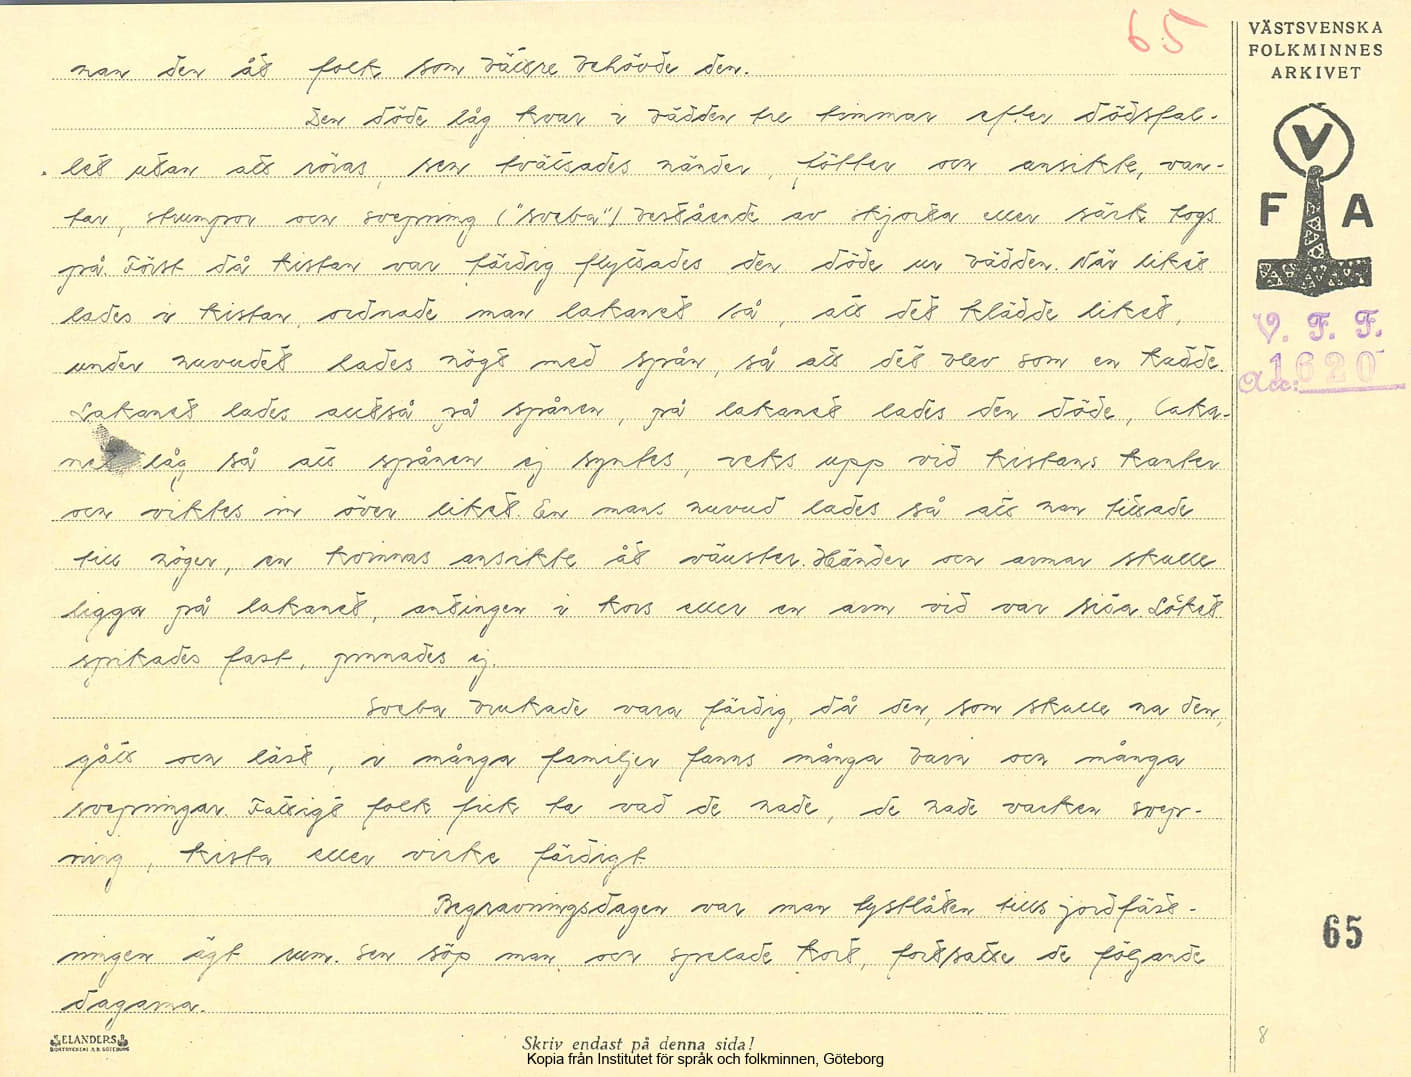 65
VÄSTSVENSKA
FOLKMINNES
ARKIVET
V
F A
V. F. F.
Acc: 1620
man den åt folk som bättre behövde den.
Den döde låg kvar i bädden tre timmar efter dödsfal-
let utan att röras, sen tvättades händer, fötter och ansikte, van-
tar, strumpor och svepning ("sveba") bestående av skjorta eller särk togs
på. Först då kistan var färdig flyttades den döde ur bädden. När liket
lades i kistan, ordnade man lakanet så, att det klädde liket,
under huvudet lades högt med spån, så att det blev som en kudde.
Lakanet lades alltså på spånen, på lakanet lades den döde, laka-
net låg så att spånen ej syntes, veks upp vid kistans kanter
och viktes in över liket. En mans huvud lades så att han tittade
till höger, en kvinnas ansikte åt vänster. Händer och armar skulle
ligga på lakanet, antingen i kors eller en arm vid var sida. Locket
spikades fast, pinnades ej.
Sveba brukade vara färdig, då den, som skulle ha den,
gått och läst, i många familjer fanns många barn och många
svepningar. Fattigt folk fick ta vad de hade, de hade varken svep-
ning, kista eller virke färdigt
Begravningsdagen var man tystlåten tills jordfäst-
ningen ägt rum. Sen söp man och spelade kort, fortsatte de följande
dagarna.
65
8
ELANDERS
BOKTRYCKERI A.B. GÖTEBORG
Skriv endast på denna sida!
Kopia från Institutet för språk och folkminnen, Göteborg